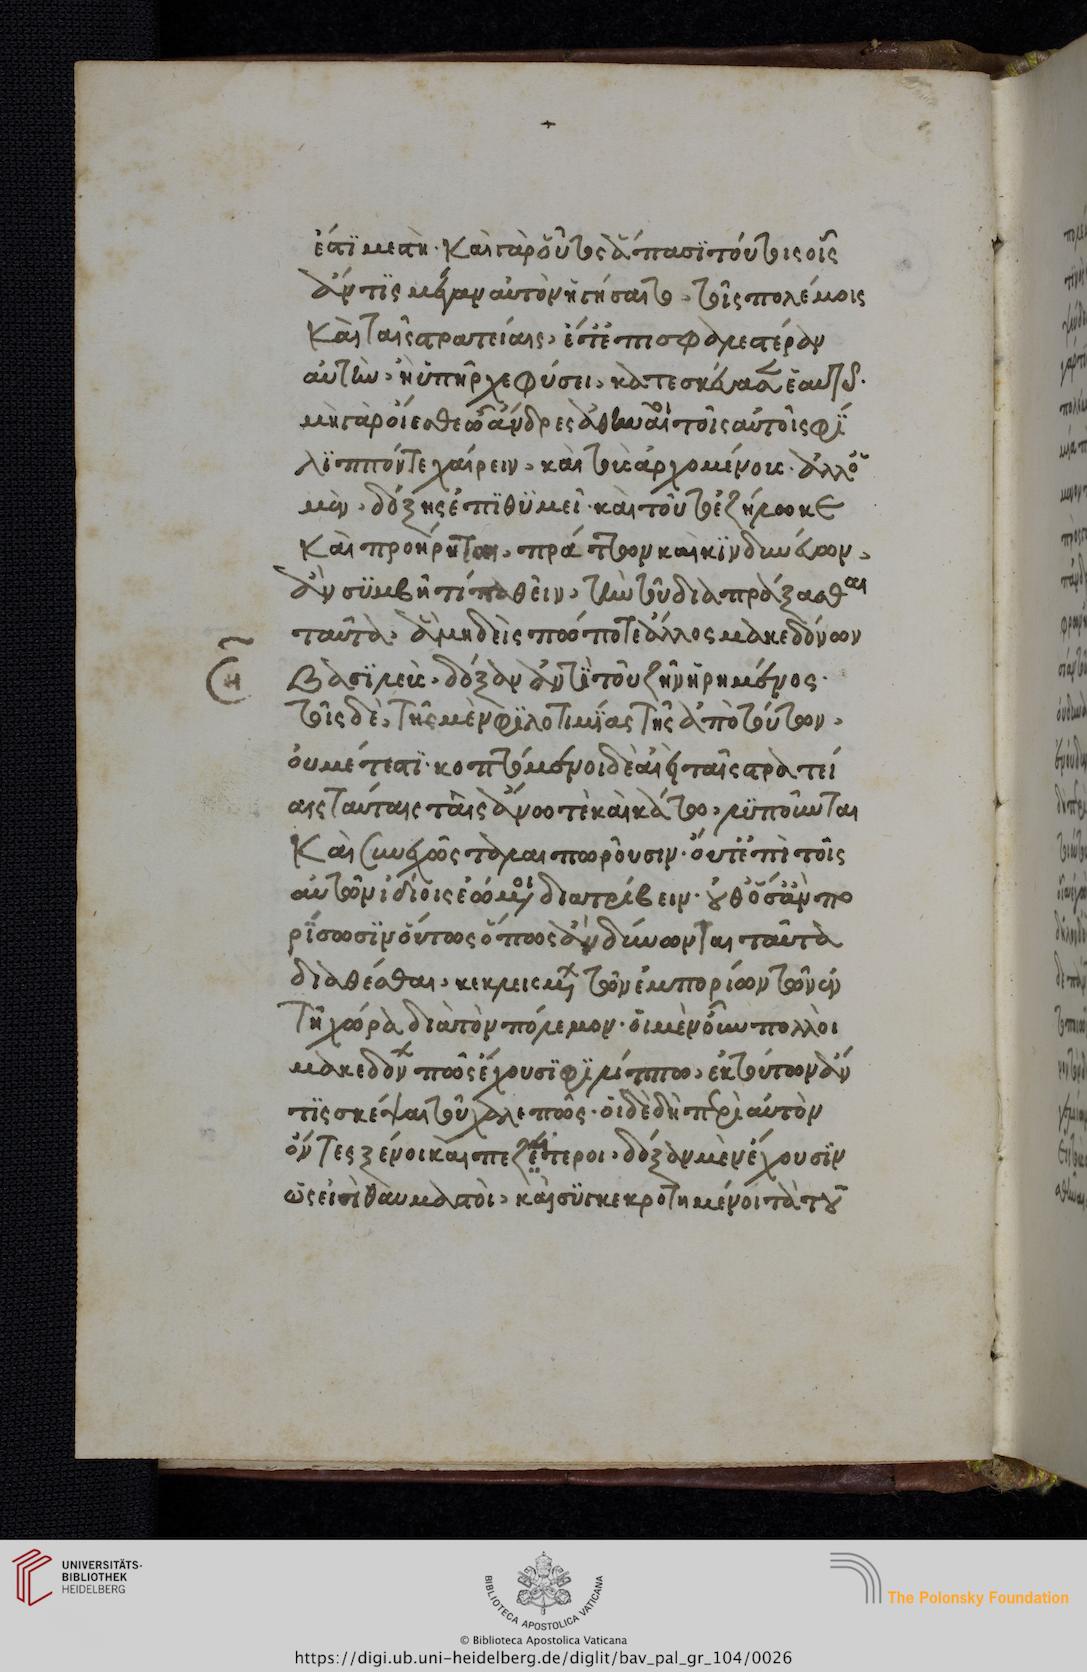 ἐστϊ μεστή· Καὶ γὰρ οὗτος ἅπασϊ τούτοις οἷς
ἄν τϊς μέγαν αὐτὸν ἡγήσαιτο, τοῖς πολέμοις
Καὶ ταῖς στρατείαις, ἔτ' ἐπισφαλεστέραν
αὑτῶ, ἢ ὑπῆρχε φύσει, κατεσκεύασεν ἑαυτῶ.
μὴ γὰρ οἴεσθε ὦ ἄνδρες ἀθηναῖοι τοῖς αὐτοῖς φϊ
λϊππόν τε χαίρειν, καὶ τοὺς ἀρχομένους· ἀλλ' ὁ
μὲν, δόξης ἐπϊθϋμεῖ· καὶ τοῦτο ἐζήλωκε
Καὶ προήρηται, πράττων καὶ κϊνδυνεύων,
ἂν σϋμβῆ τί παθεῖν, τὴν τοῦ διαπράξασθαι
ταῦτα, ἃ μηδεὶς πώποτε ἄλλος μακεδόνων
Βασϊλεὺς, δόξαν ἀντὶ τοῦ ζῆν ἡρημένος·
τοῖς δὲ, τῆς μὲν φϊλοτιμϊας τῆς ἀπὸ τούτων,
οὐ μέτεστϊ· κοπτόμενοι δὲ ἀεὶ ταῖς στρατεί
αις ταύταις ταῖς ἄνω τὲ καὶ κάτω, λϋποῦνται
Καὶ συνεχῶς ταλαιπωροῦσιν· οὔτ' ἐπὶ τοῖς
αὑτῶν ἰδίοις ἐώμενοι διατρίβειν· οὔθ' ὅσ' ἂν πο
ρίσωσϊν οὕτως ὅπως ἂν δύνωνται ταῦτα
διαθέσθαι, κεκλεισμένων τῶν ἐμπορίων τῶν ἐν
τῆ χώρα διὰ τὸν πόλεμον· οἱ μὲν οὖν πολλοὶ
μακεδόνων πῶς ἔχουσϊ φϊλίππω, ἐκ τούτων ἄν
τϊς σκέψαιτο οὐ χαλεπῶς· οἱ δὲ δὴ περὶ αὐτὸν
ὄντες ξένοι καὶ πεζέταιροι, δόξαν μὲν ἔχουσϊν
ὡς εἰσὶ θαυμαστοὶ, καὶ σϋγκεκροτημένοι τὰ τοῦ
UNIVERSITÄTS-
BIBLIOTHEK
HEIDELBERG
BIBLIOTECA APOSTOLICA VATICANA
The Polonsky Foundation
© Biblioteca Apostolica Vaticana
https://digi.ub.uni-heidelberg.de/diglit/bav_pal_gr_104/0026